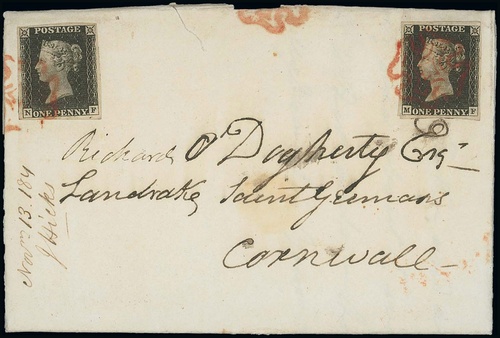 POSTAGE
N F
ONE PENNY
POSTAGE
M F
ONE PENNY
6
Richard O'Dogherty Esqr
Landrake, Saint Germans
Cornwall
Novm 13. 184
J Hicks